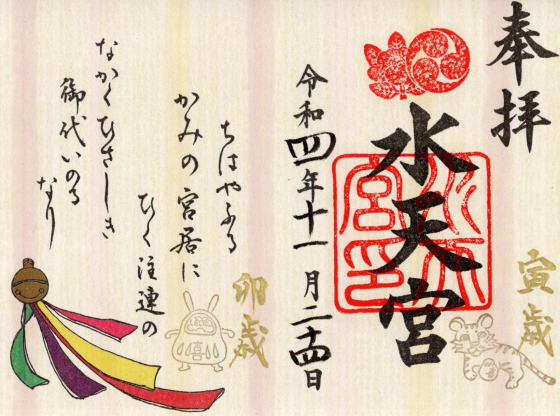 奉拝
寅歳
水天宮
水天宮印
令和四年十一月二十四日
卯歳
ちはやふる
かみの宮居に
ひく注連の
なかくひさしき
御代いのる
なり